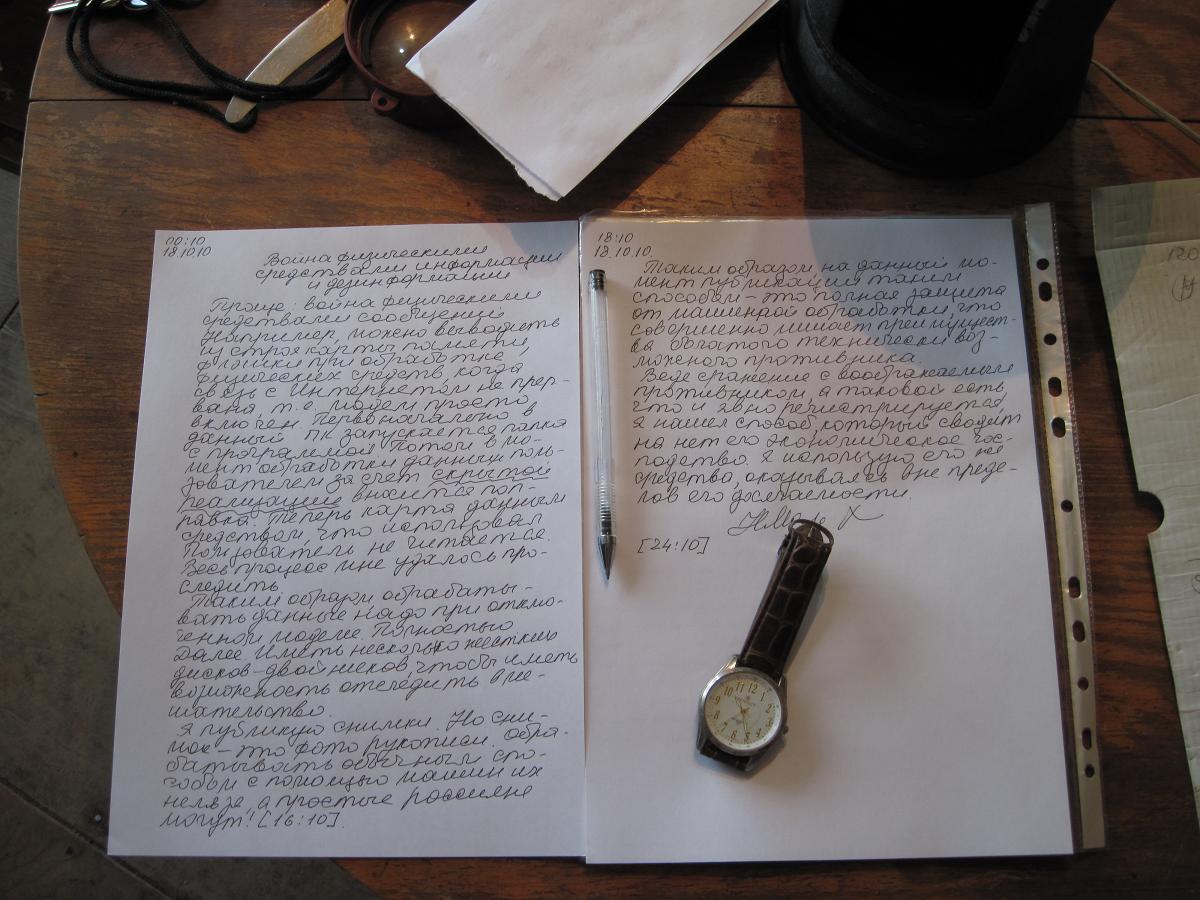 00:10
18.10.10
Война физическими
средствами информации
и дезинформации
Проще: война физическими
средствами сообщений
Например, можно выводить
из строя карты памяти,
флэшки при обработке
физических средств, когда
связь с Интернетом не прер-
вана, т.е. модем просто
включен. Первоначально в
данный ПК запускается папка
с программой. Потом в мо-
мент обработки данных поль-
зователем за счёт скрытой
реализации вносится поп-
равка. Теперь карта данным
средством, что использовал
Пользователь не читается.
Весь процесс мне удалось про-
следить.
Таким образом обрабаты-
вать данные надо при отклю-
ченном модеме. Полностью
Далее иметь несколько жестких
дисков-двойников, чтобы иметь
возможность отследить вме-
шательство.
Я публикую снимки. Но сни-
мок – это фото рукописи. Обра-
батывать обычным спо-
собом с помощью машин их
нельзя, а простые россияне
могут! [16:10].
18:10
18.10.10.
Таким образом, на данный мо-
мент публикации таким
способом – это полная защита
от машинной обработки, что
совершенно лишает преимущест-
ва богатого технически воз-
можного противника.
Веде сражение с воображаемым
противником, а таковой есть
что и явно регистрируется,
я нашел способ, который сводит
на нет его экономическое гос-
подство. Я использую его же
средства, оказываясь вне преде-
лов его досягаемости.
[24:10]
12 1 2 3 4 5 6 7 8 9 10 11